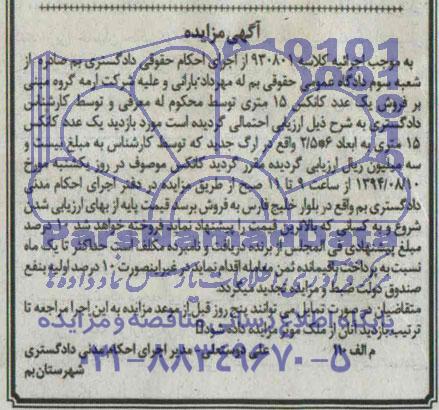 آگهی مزایده
به موجب اجرائیه کلاسه ۹۳۰۸۰۱ از اجرای احکام حقوقی دادگستری بم صادره از
شعبه سوم دادگاه عمومی حقوقی بم له مهرداد بارانی و علیه شرکت ارمه گروه مبنی
بر فروش یک عدد کانکس ۱۵ متری توسط محکوم له معرفی و توسط کارشناس
دادگستری به شرح ذیل ارزیابی احتمالی گردیده است مورد بازدید یک عدد کانکس
۱۵ متری به ابعاد ۲/۵*۶ واقع در ارگ جدید که توسط کارشناس به مبلغ بیست و
سه میلیون ریال ارزیابی گردیده مقرر گردید کانکس موصوف در روز یکشنبه مورخ
۱۳۹۴/۰۸/۱۰ از ساعت ۹ تا ۱۱ صبح از طریق مزایده در دفتر اجرای احکام مدنی
دادگستری بم واقع در بلوار خلیج فارس به فروش برسد قیمت پایه از بهای ارزیابی شده
شروع و به کسانی که بالاترین قیمت را پیشنهاد نماید فروخته خواهد شد ۱۰ درصد
مبلغ پیشنهادی فی المجلس از برنده دریافت و نامبرده مکلف است حداکثر تا یک ماه
نسبت به پرداخت باقیمانده ثمن معامله اقدام نماید در غیر اینصورت ۱۰ درصد اولیه بنفع
صندوق دولت ضبط و مزایده تجدید میگردد
متقاضیان در صورت تمایل می توانند پنج روز قبل از موعد مزایده به این اجرا مراجعه تا
ترتیب بازدید آنان از ملک مورد مزایده داده شود
م الف ۱۱۰ علی دوستعلی - مدیر اجرای احکام مدنی دادگستری
شهرستان بم
پایگاه اطلاع رسانی مناقصه و مزایده
۰۲۱-۸۸۳۴۹۶۷۰-۵